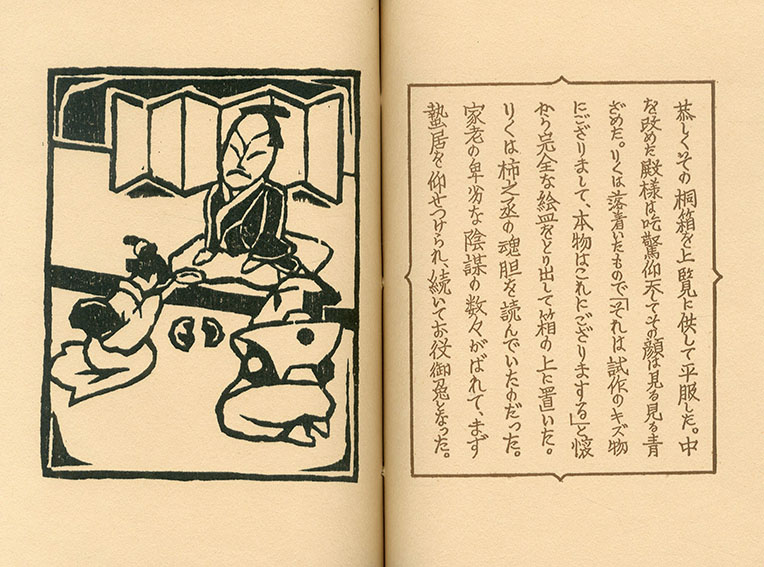 恭しくその桐箱を上覧に供して平服した。中
を改めた殿様は吃驚仰天してその顔は見る見る青
ざめた。りくは落着いたもので「それは試作のキズ物
にござりまして、本物はこれにござりまする」と懐
から完全な絵皿をとり出して箱の上に置いた。
りくは柿之丞の魂胆を読んでいたのだった。
家老の卑劣な陰謀の数々がばれて、まず
蟄居を仰せつけられ、続いてお役御免となった。